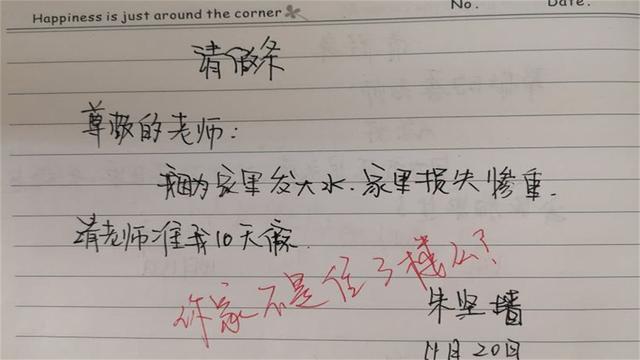 Happiness is just around the corner
No.
Date:
请假条
尊敬的老师:
我因为家里发大水.家里损失惨重.
请老师准我10天假.
你家不是住了楼么?
朱坚墙
11月20日